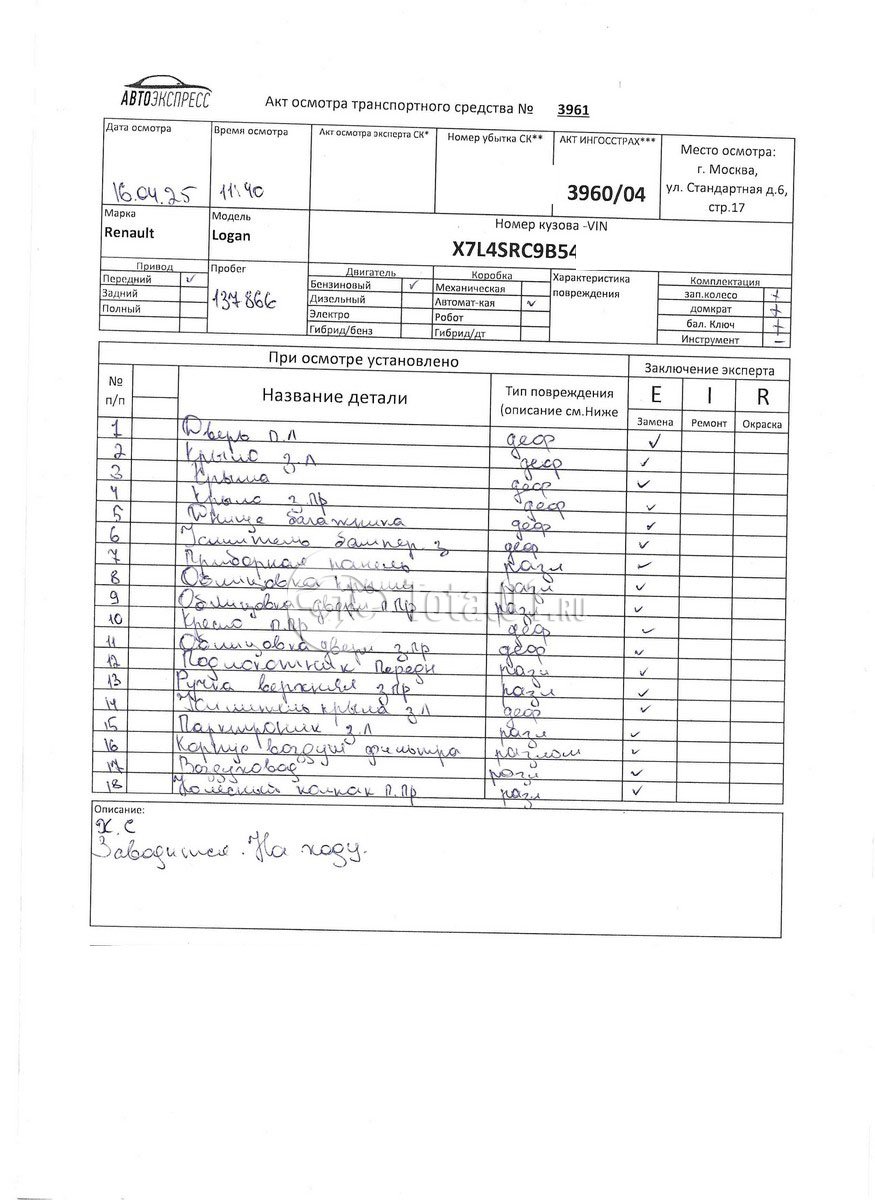 АВТОЭКСПРЕСС
Акт осмотра транспортного средства № 3961
Дата осмотра Время осмотра Акт осмотра эксперта СК* Номер убытка СК** АКТ ИНГОССТРАХ*** Место осмотра:
г. Москва,
16.04.25 11:40 3960/04 ул. Стандартная д.6,
стр.17
Марка Модель Номер кузова -VIN
Renault Logan X7L4SRC9B54
Привод Пробег Двигатель Коробка Характеристика Комплектация
Передний ✓ 137866 Бензиновый ✓ Механическая повреждения зап.колесо +
Задний Дизельный Автомат-кая ✓ домкрат +
Полный Электро Робот бал. Ключ +
Гибрид/бенз Гибрид/дт Инструмент –
При осмотре установлено Заключение эксперта
№ п/п Название детали Тип повреждения (описание см.Ниже E I R
Замена Ремонт Окраска
1 Дверь п.л деф ✓
2 Крыло з.л деф ✓
3 Крыша деф ✓
4 Крыло з.пр деф ✓
5 Днище багажника деф ✓
6 Усилитель бампер з деф ✓
7 Приборная панель разл ✓
8 Облицовка крыши разл ✓
9 Облицовка двери п.пр разл ✓
10 Кресло п.пр деф ✓
11 Облицовка двери з.пр деф ✓
12 Подлокотник передн разл ✓
13 Ручка верхняя з.пр разл ✓
14 Усилитель крыла з.л деф ✓
15 Парктроник з.л разл ✓
16 Корпус воздуш фильтра разлом ✓
17 Воздуховод разл ✓
18 Колесный колпак п.пр разл ✓
Описание:
Х.С
Заводится. На ходу.
Total01.RU